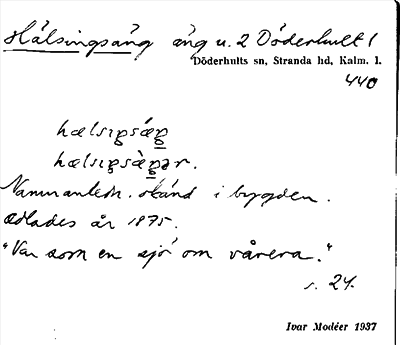 Hälsingsäng äng u. 2 Döderhult 1
Döderhults sn, Stranda hd, Kalm. l.
440
hælsiŋsæŋ
hælsiŋsæŋər.
Namnanledn. okänd i bygden.
Odlades år 1875.
"Var som en sjö om vårera."
s. 24.
Ivar Modéer 1937